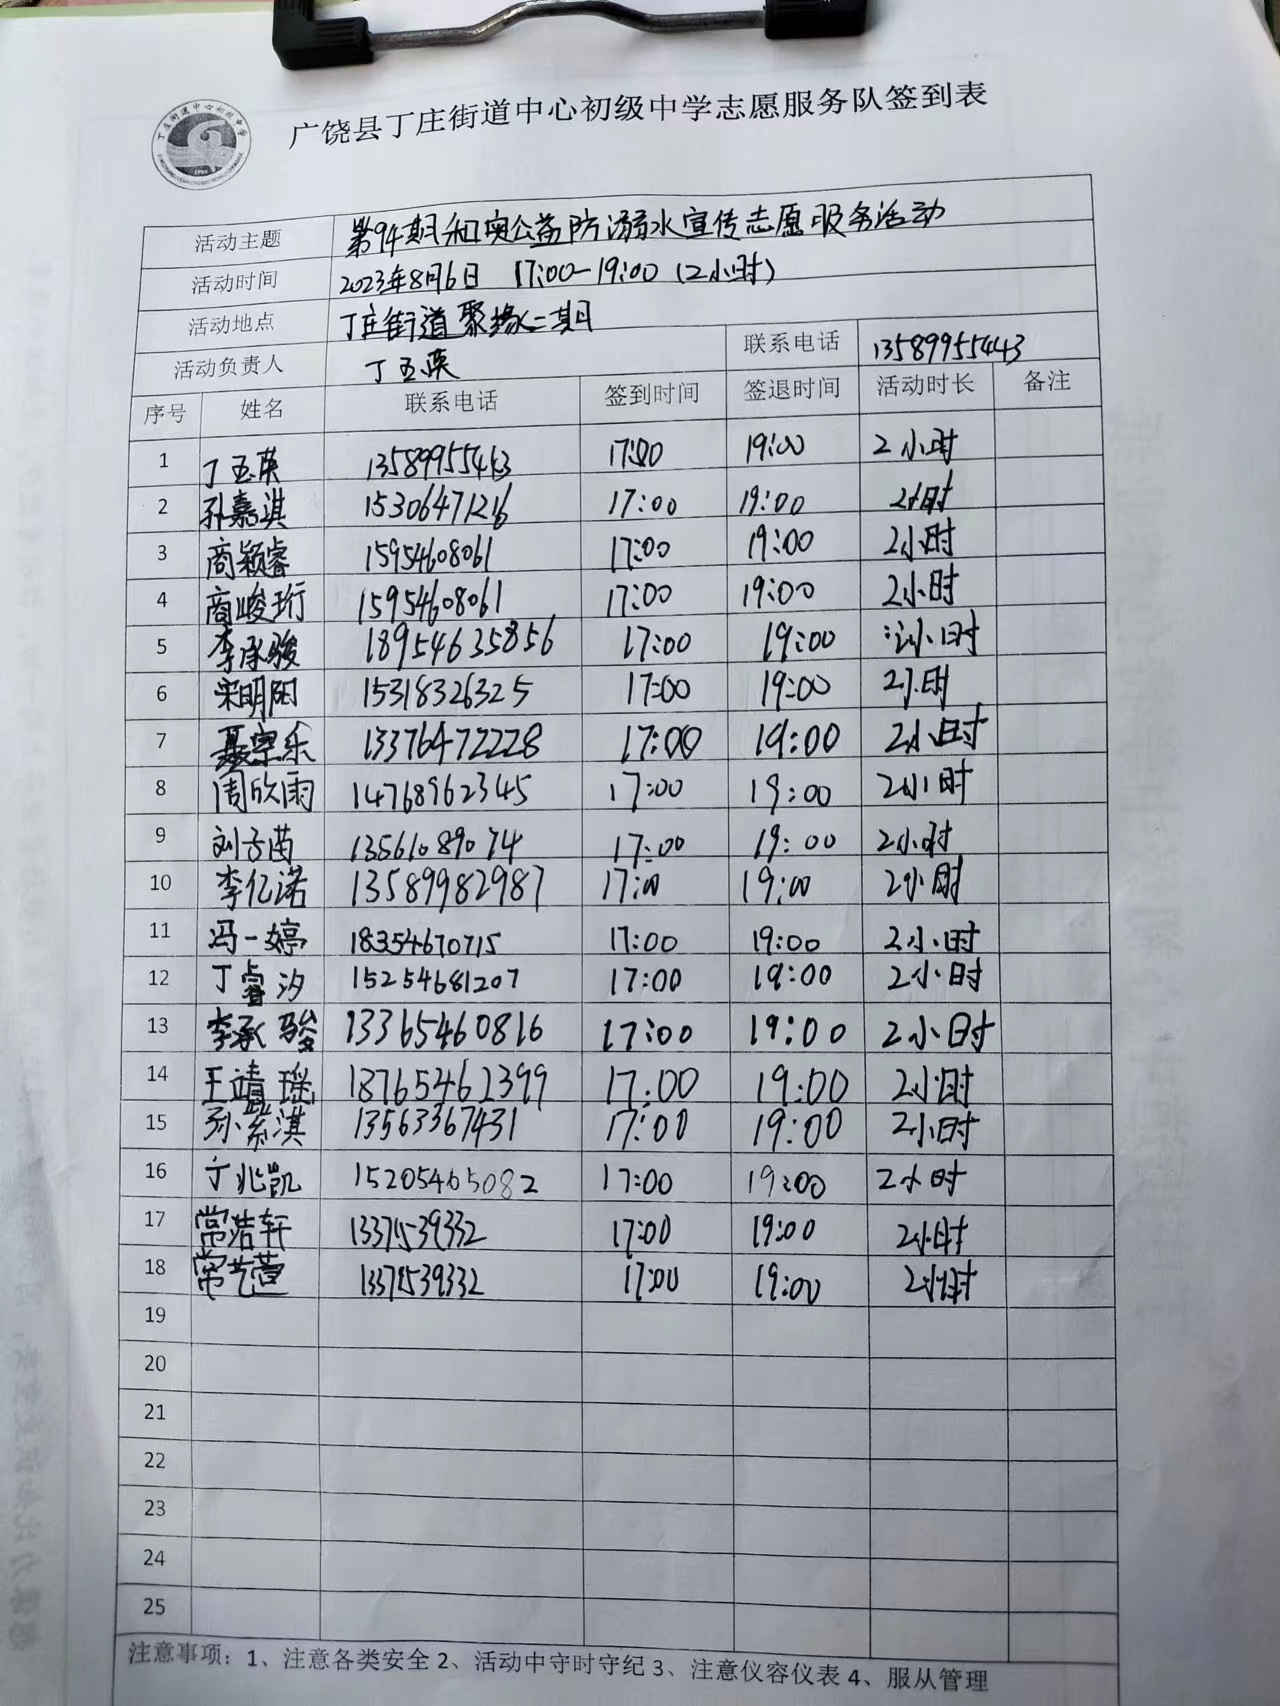 丁庄街道中心初级中学
广饶县丁庄街道中心初级中学志愿服务队签到表
活动主题 第94期和奥公益防溺水宣传志愿服务活动
活动时间 2023年8月6日 17:00-19:00 (2小时)
活动地点 丁庄街道聚缘二期
活动负责人 丁玉英 联系电话 13589955443
序号 姓名 联系电话 签到时间 签退时间 活动时长 备注
1 丁玉英 13589955443 17:00 19:00 2小时
2 孙嘉淇 15306471216 17:00 19:00 2小时
3 商颖睿 15954608061 17:00 19:00 2小时
4 商峻珩 15954608061 17:00 19:00 2小时
5 李承骏 18954635856 17:00 19:00 2小时
6 宋明阳 15318326325 17:00 19:00 2小时
7 聂宗乐 13376472228 17:00 19:00 2小时
8 周欣雨 14768962345 17:00 19:00 2小时
9 刘子茵 13561089074 17:00 19:00 2小时
10 李亿诺 13589982987 17:00 19:00 2小时
11 冯一婷 18354670715 17:00 19:00 2小时
12 丁睿汐 15254681207 17:00 19:00 2小时
13 李承骏 13365460816 17:00 19:00 2小时
14 王靖瑶 18765462399 17:00 19:00 2小时
15 孙紫淇 13563367431 17:00 19:00 2小时
16 丁兆凯 15205465082 17:00 19:00 2小时
17 常浩轩 13371539332 17:00 19:00 2小时
18 常艺萱 13371539332 17:00 19:00 2小时
19
20
21
22
23
24
25
注意事项：1、注意各类安全 2、活动中守时守纪 3、注意仪容仪表 4、服从管理